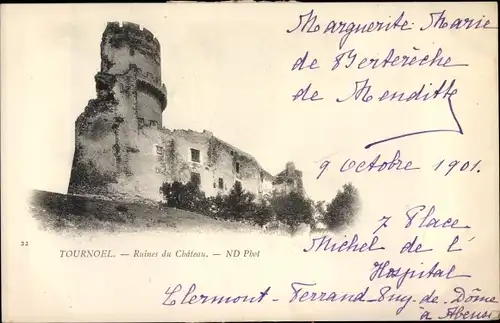 Marguerite-Marie
de Berterèche
de Menditte
9 Octobre 1901.
22
TOURNOEL. — Ruines du Château. — ND Phot
7 Place
Michel de l'
Hospital
Clermont-Ferrand Puy-de-Dôme